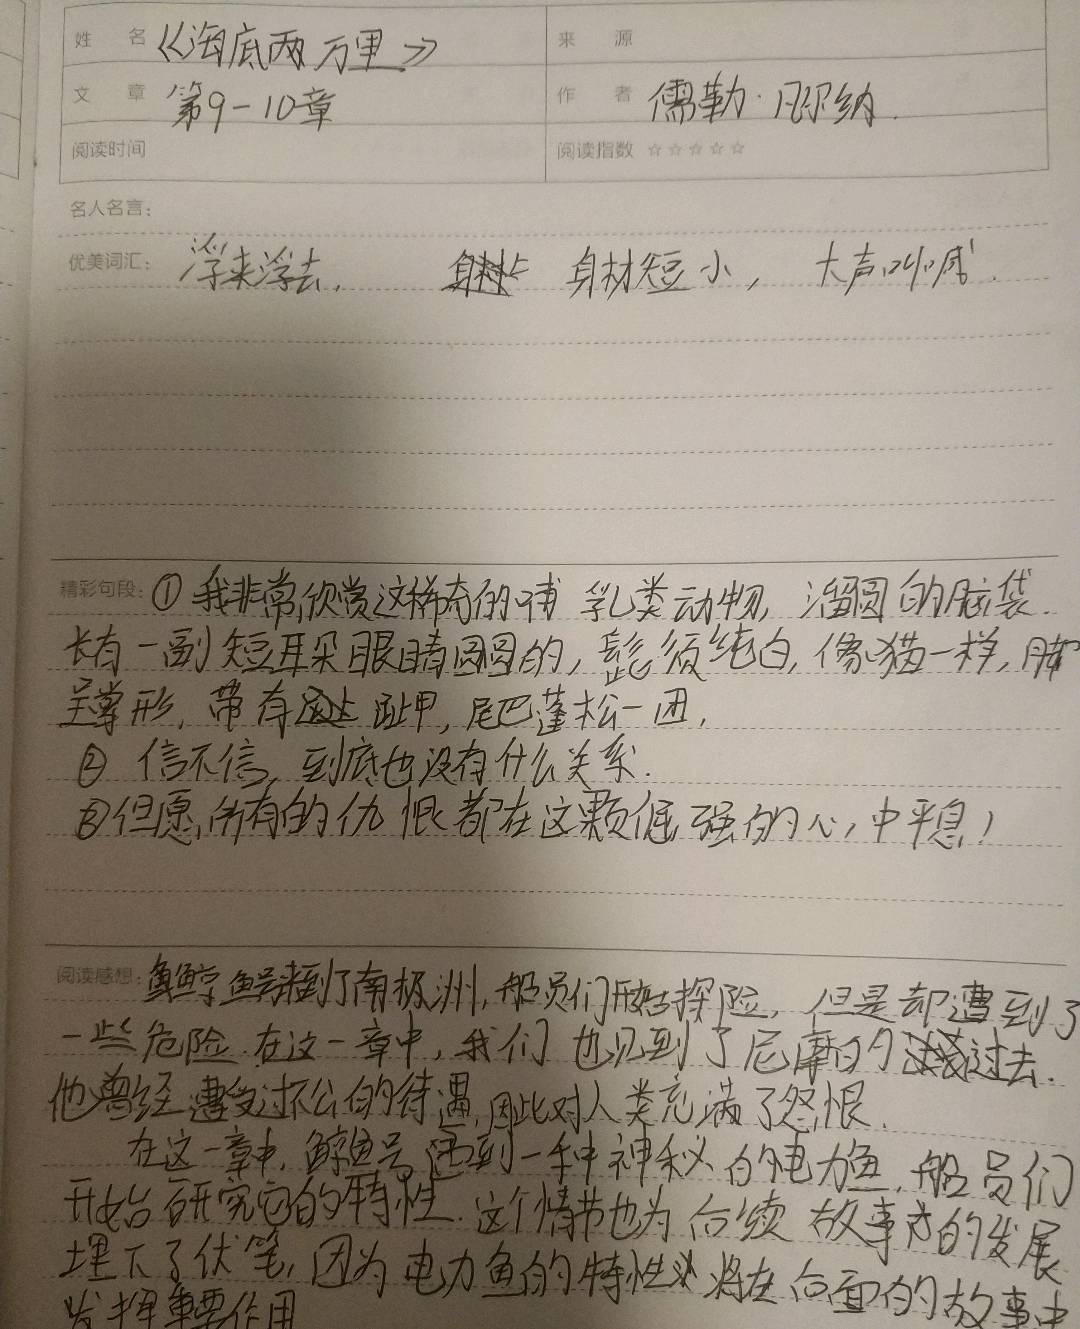 姓 名 《海底两万里》 来 源
文 章 第9-10章 作 者 儒勒·凡尔纳.
阅读时间 阅读指数 ☆☆☆☆☆
名人名言:
优美词汇: 浮来浮去, 身材短小, 大声叫喊.
精彩句段: ①我非常欣赏这稀奇的哺乳类动物, 溜圆的脑袋.
长有一副短耳朵眼睛圆圆的, 髭须纯白, 像猫一样, 脚
呈掌形, 带有趾甲, 尾巴蓬松一团,
② 信不信, 到底也没有什么关系.
③但愿所有的仇恨都在这颗倔强的心中平息!
阅读感想: 鹦鹉鱼号来到了南极洲, 船员们开始探险, 但是却遭到了
一些危险.在这一章中, 我们也见到了尼摩的过去.
他曾经遭受过不公的待遇, 因此对人类充满了怨恨.
在这一章中, 鲸鱼号遇到一种神秘的电力鱼, 船员们
开始研究它的特性.这个情节也为后续故事的发展
埋下了伏笔, 因为电力鱼的特性将在后面的故事中
发挥重要作用